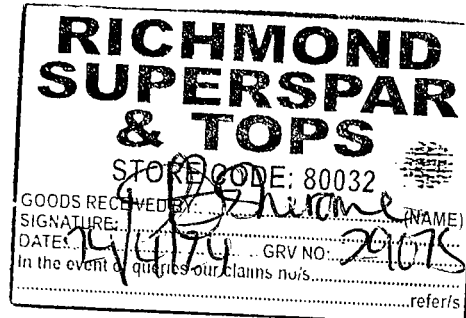 RICHMOND
SUPERSPAR
& TOPS
STORE CODE: 80032
GOODS RECEIVED BY: (NAME)
SIGNATURE:
DATE: 24/4/24 GRV NO: 29075
In the event of queries our claims no/s
refer/s